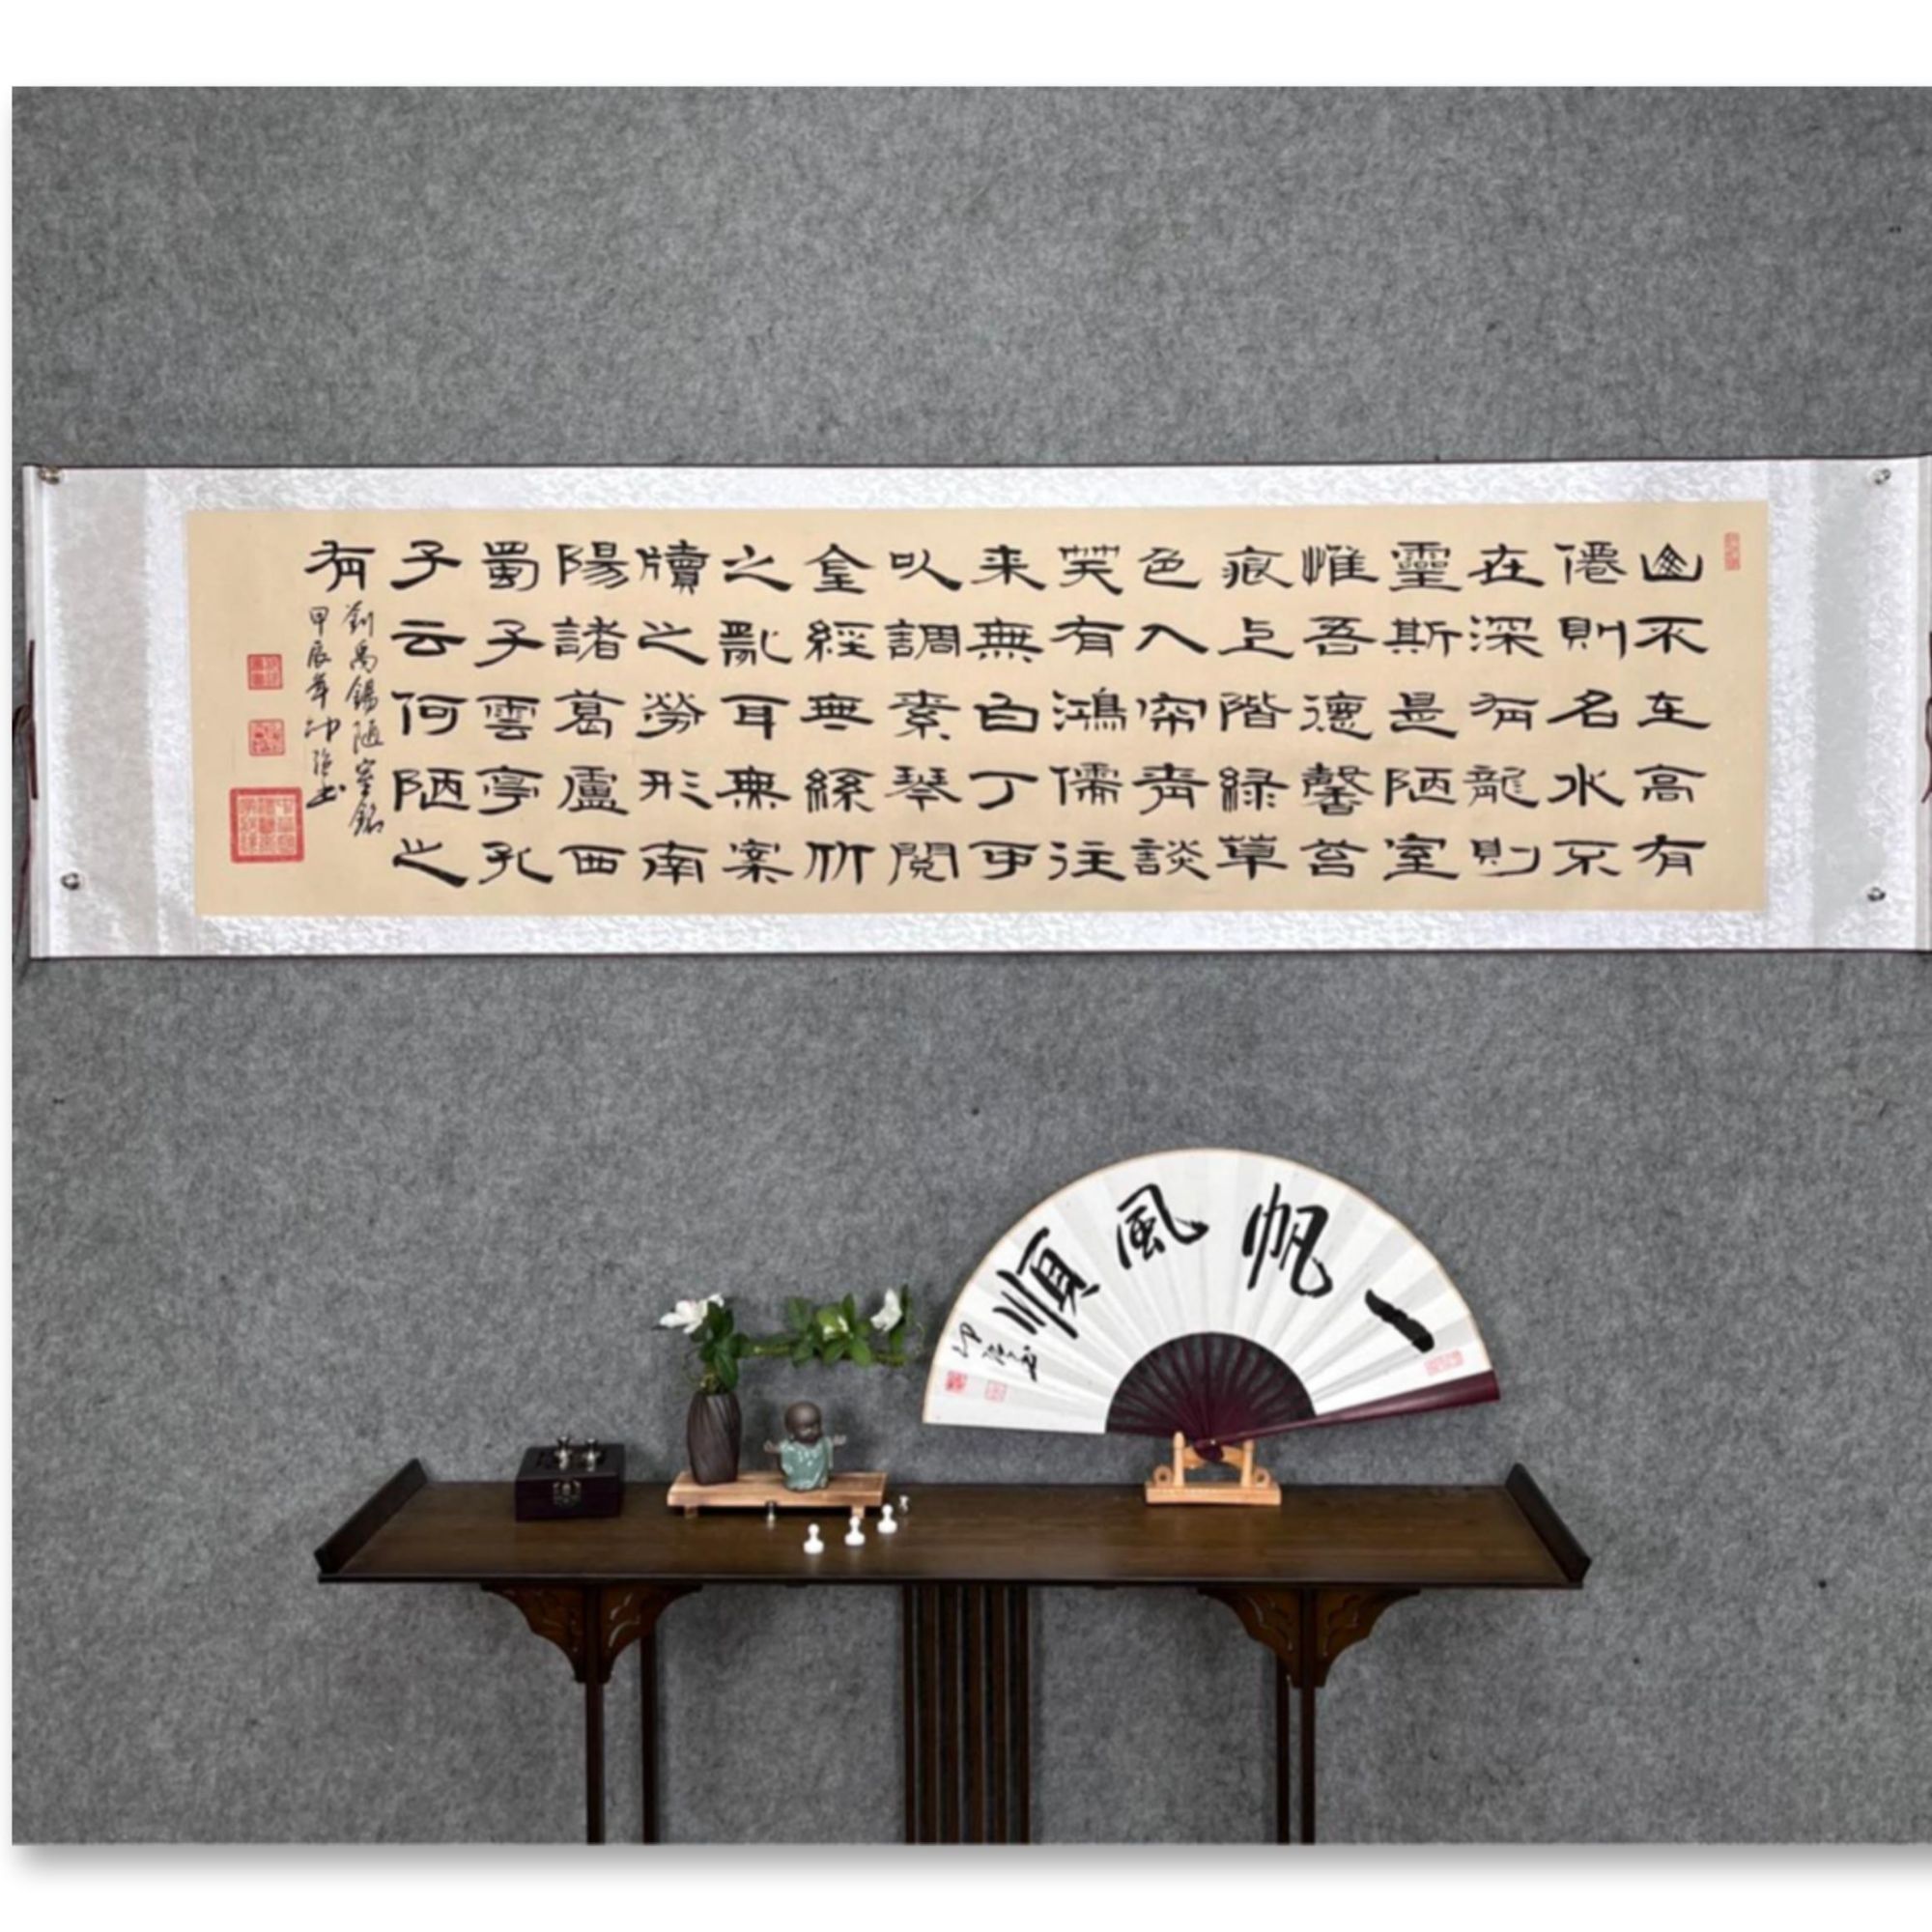 山不在高有
僊則名水不
在深有龍則
靈斯是陋室
惟吾德馨苔
痕上階緑草
色入簾青談
笑有鴻儒往
来無白丁可
以調素琴閱
金經無絲竹
之亂耳無案
牘之勞形南
陽諸葛廬西
蜀子雲亭孔
子云何陋之
有
劉禹錫陋室銘
甲辰年
一帆風順